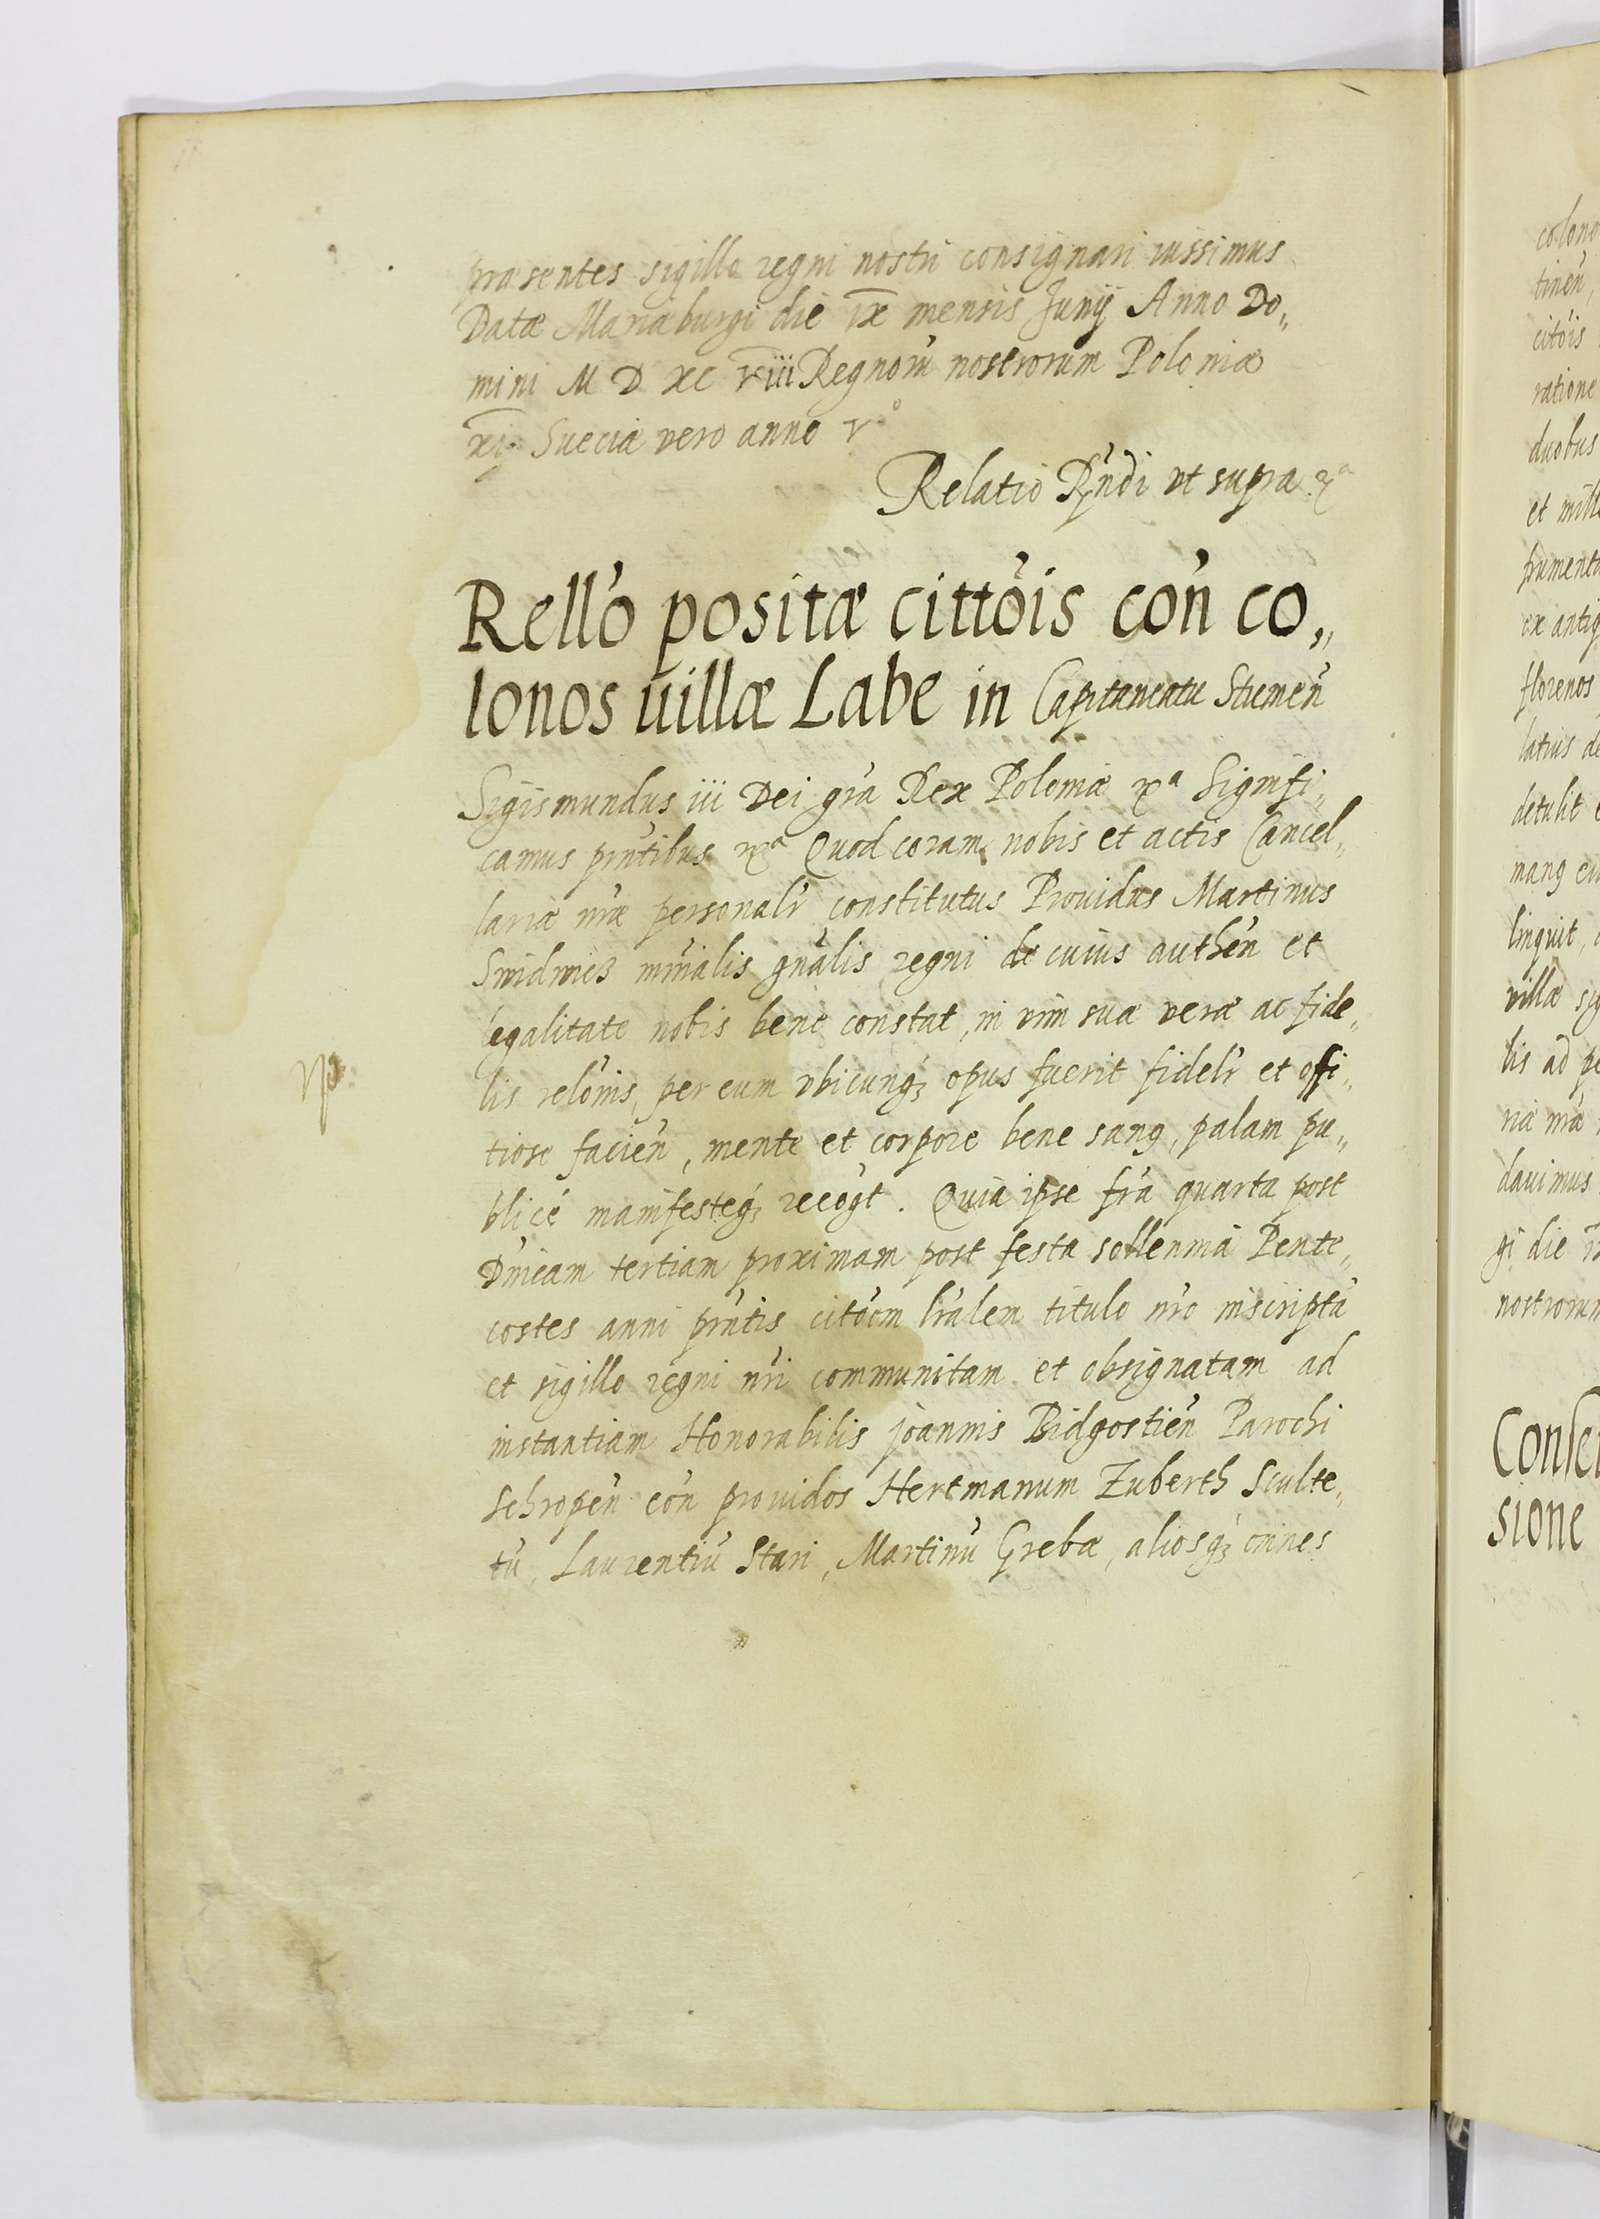 præsentes sigillo regni nostri consignari iussimus
Datæ Mariæburgi die ix mensis Junij Anno Do„
mini M D XC viii Regnorū nostrorum Poloniæ
xi Sueciæ vero anno v°
Relatio Rńdi vt supra
Relľo positæ cittóis cóń co„
lonos uillæ Labe in Capitaneatu Stumeń
Sigismundus iii Dei gŕa Rex Poloniæ xª Signifi„
camus pńtibus xª Quod coram nobis et actis Cancel„
lariæ nŕæ personalŕ constitutus Prouidus Martinus
Swidwicz mińalis gńalis regni de cuius autheń et
legalitate nobis bene constat, in vim suæ veræ ac fide„
lis relóńis, per eum vbicunqȝ opus fuerit fidelŕ et offi„
tiose facień, mente et corpore bene sanꝯ, palam pu„
blicé manifesteqȝ recogt. Quia ipse fŕa quarta post
Dńicam tertiam proximam post festa sollennia Pente„
costes anni pŕntis citóem lŕalem titulo nŕo inscriptā
et sigillo regni nŕi communitam et obsignatam ad
instantiam Honorabilis Joannis Bidgostień Parochi
Schropeń cóń prouidos Hertmanum Zuberth Sculte„
tū, Laurentiū Stari, Martinū Grebæ, aliosqȝ oḿnes
colono
tineń,
citóis
ratione
duobus
et mill
frumento
ex antiq
florenos
latius de
detulit
manꝯ
linquit,
villæ
lis ad pe
riæ nŕæ
dauimus
gi die
nostrorum
Conse
sione